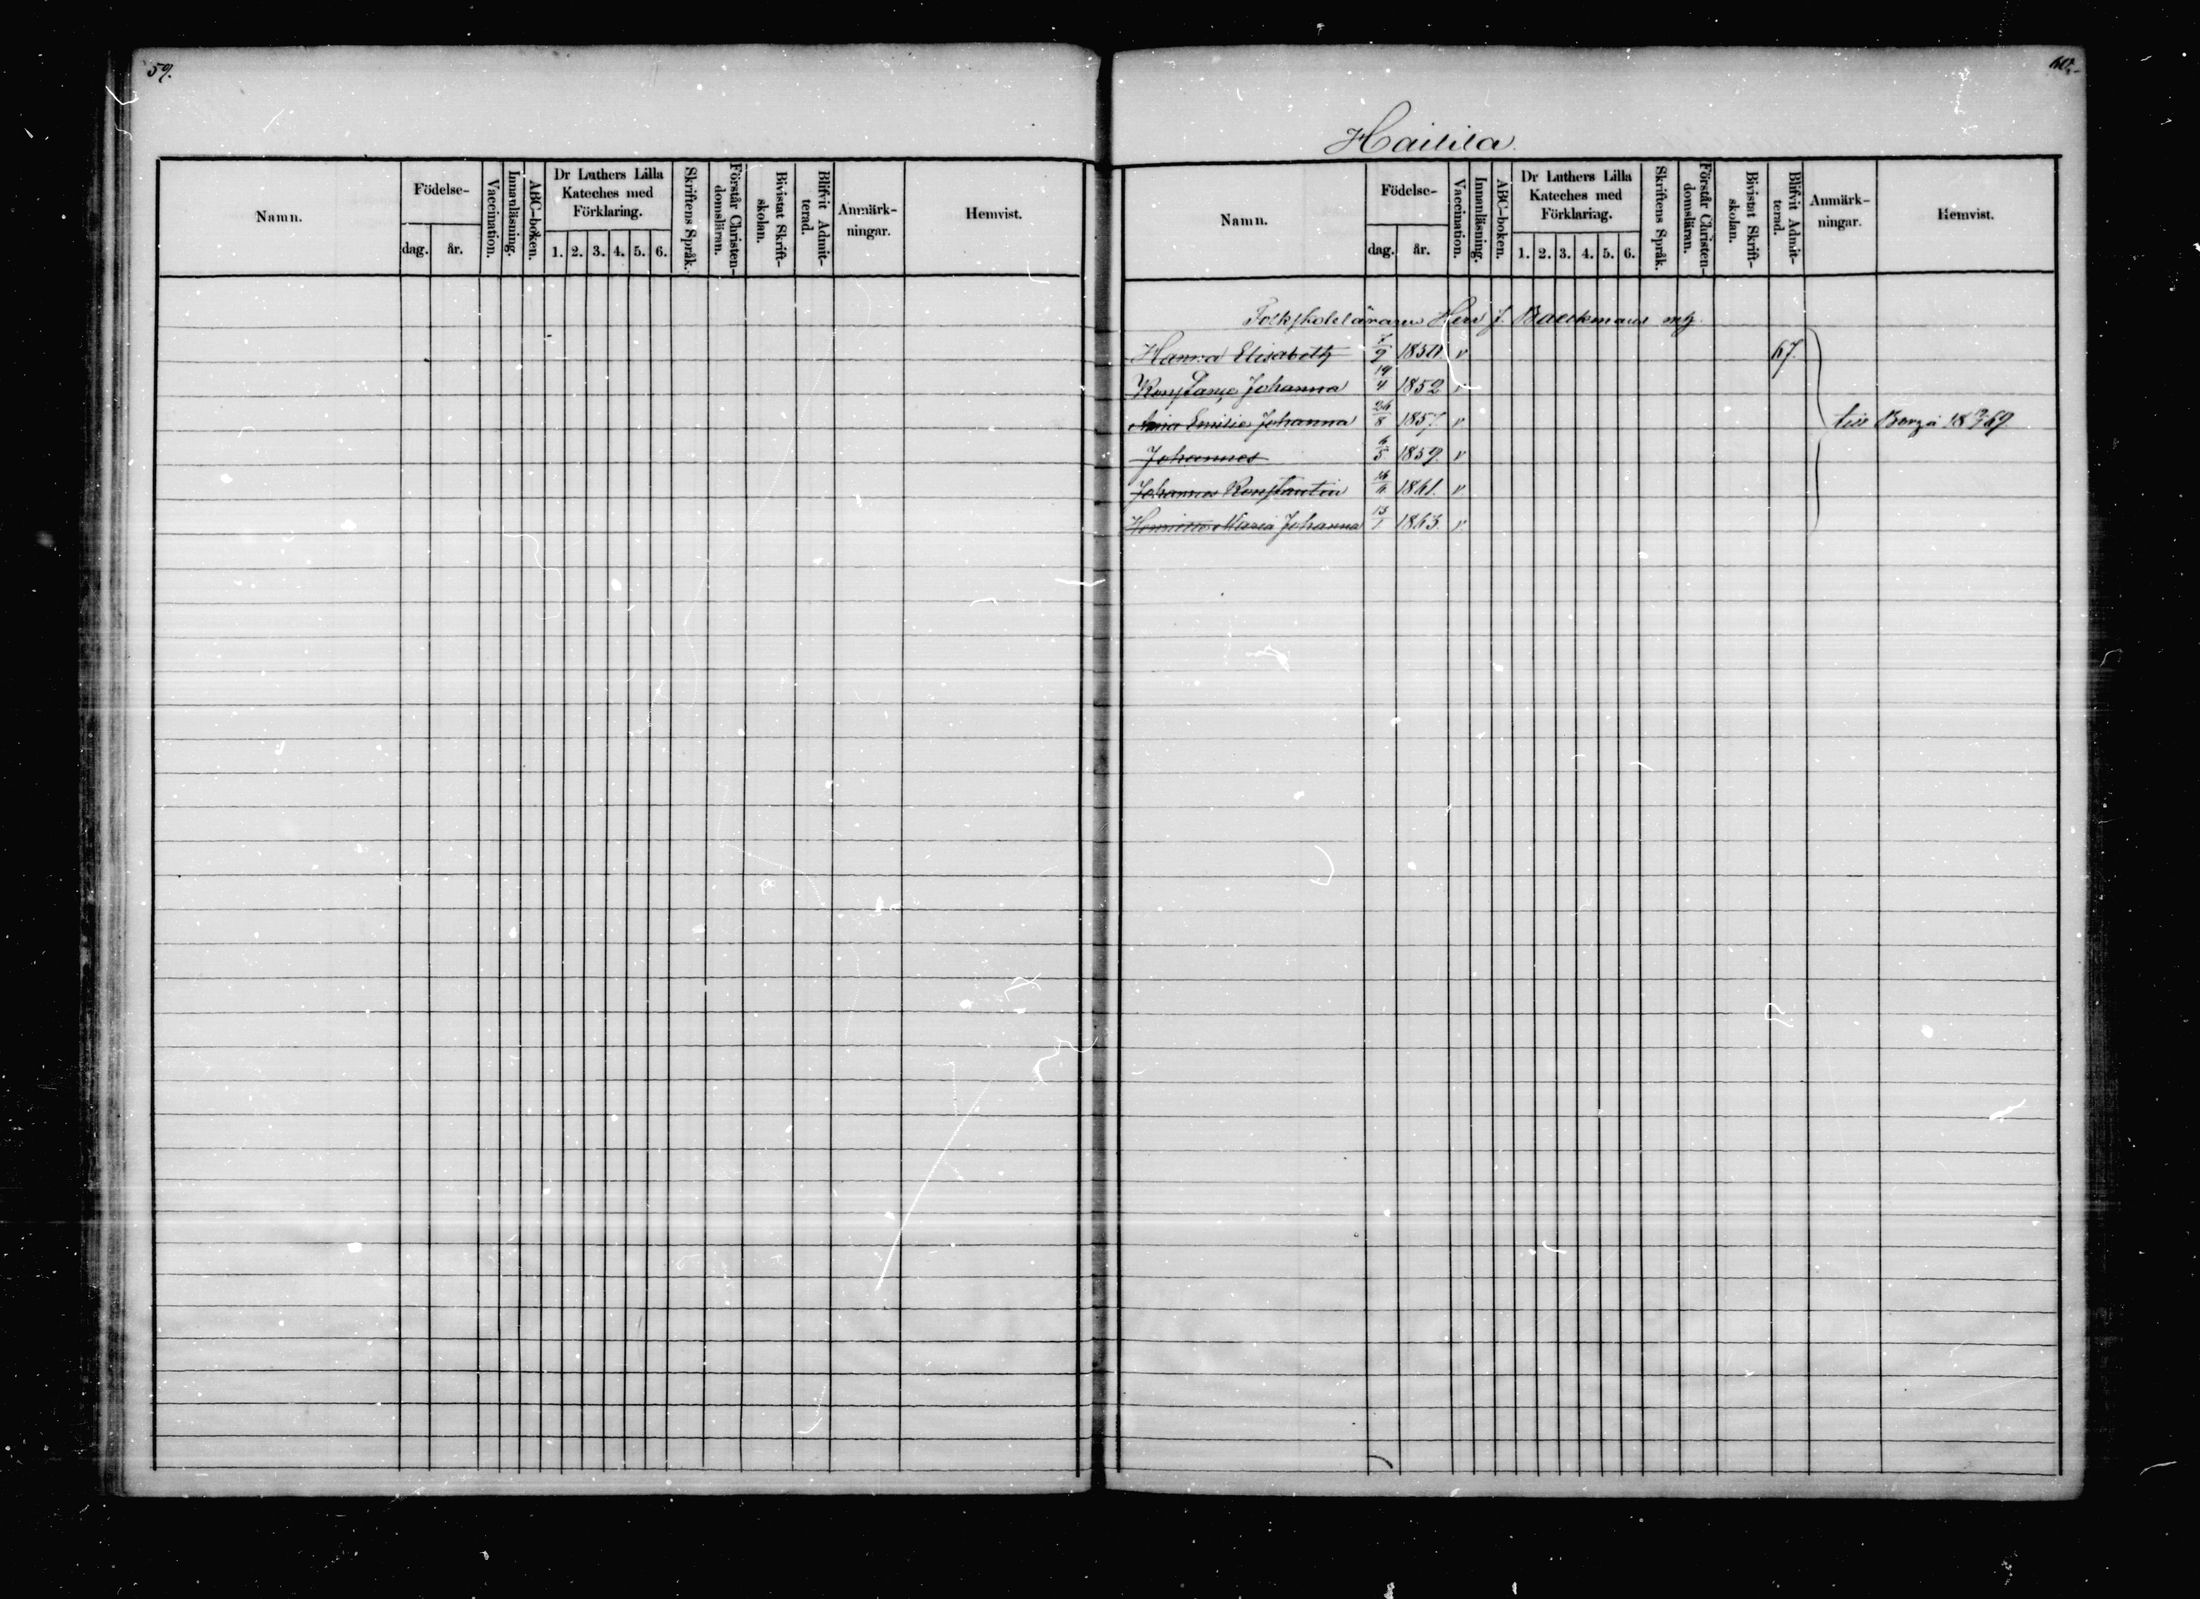 59.
Namn.
Födelse-
dag.
år.
Vaccination.
Innanläsning.
ABC-boken.
Dr Luthers Lilla
Kateches med
Förklaring.
1. 2. 3. 4. 5. 6.
Skriftens Språk.
Förstår Christen-
domsläran.
Bivistat Skrift-
skolan.
Blifvit Admit-
terad.
Anmärk-
ningar.
Hemvist.
60.
Haiilila.
Namn.
Födelse-
dag.
år.
Vaccination.
Innanläsning.
ABC-boken.
Dr Luthers Lilla
Kateches med
Förklaring.
1. 2. 3. 4. 5. 6.
Skriftens Språk.
Förstår Christen-
domsläran.
Bivistat Skrift-
skolan.
Blifvit Admit-
terad.
Anmärk-
ningar.
Hemvist.
Folkskoleläraren Herr J. Baeckmans
Hanna Elisabeth 7/9 1850 v 67.
Konstance Johanna 19/4 1852 v
Emilia Johanna 26/8 1857. v till Borgå 18 69
Johannes 6/5 1859. v
Johannes Konstantin 1861. v
Maria Johanna 13/1 1863. v